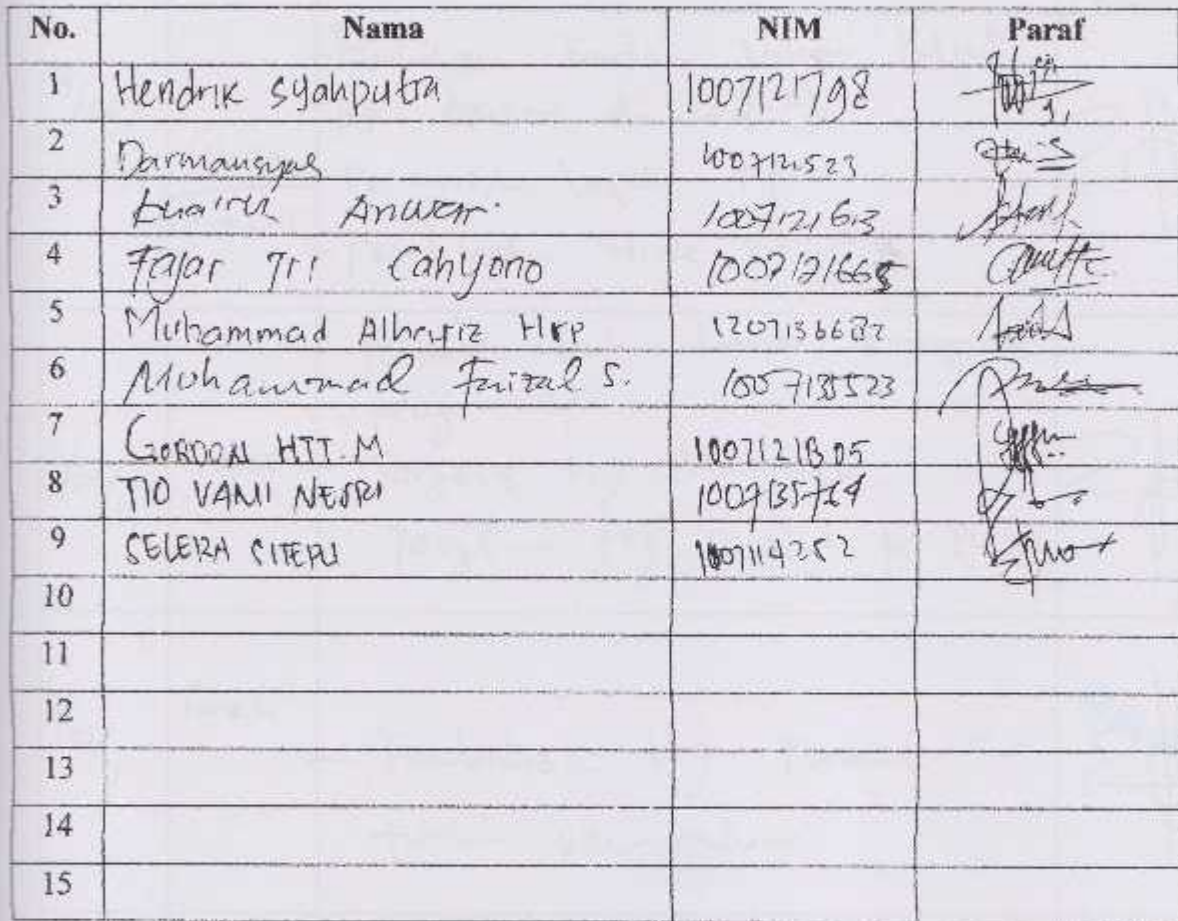 No. Nama NIM Paraf
1 Hendrik syahputra 1007121798
2 Darmansyah 1007121523
3 Khairul Anwar 1007121613
4 Fajar Tri Cahyono 1007121668
5 Muhammad Alhafiz Hrp 1207136682
6 Mohammad Faizal S. 1007135523
7 GORDON HTT.M 1007121805
8 TIO VAMI NESRI
9 SELERA SITEPU 1007114252
10
11
12
13
14
15